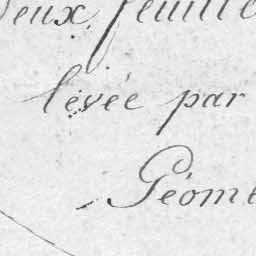 deux feuille
levée par
Géomé